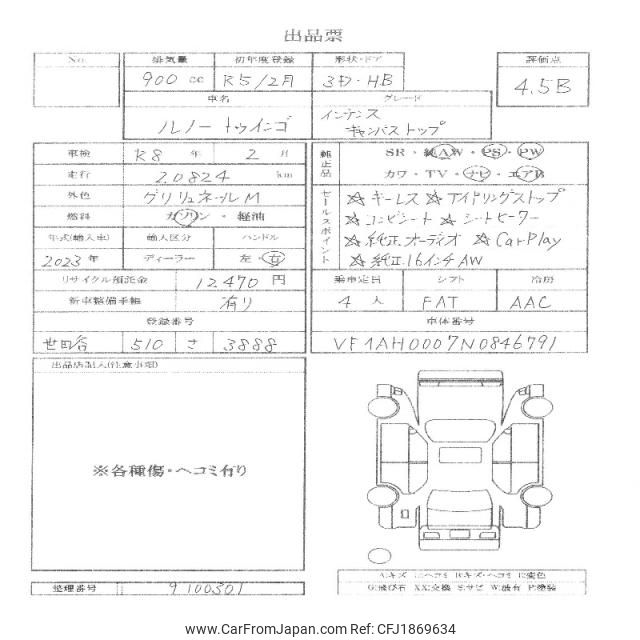 出品票
No. 排気量 初年度登録 形状・ドア 評価点
900 cc R5/2月 3D・HB 4.5B
車名 グレード
ルノー トゥインゴ インテンス
キャンバス トップ
車検 R8 年 2 月
走行 2.0824 km
外色 グリリュネールM
燃料 ガソリン・軽油
年式(輸入車) 輸入区分 ハンドル
2023年 ディーラー 左・右
リサイクル預託金 12,470 円
新車整備手帳 有り
登録番号
世田谷 510 さ 3888
純正品 SR・純AW・PS・PW
カワ・TV・ナビ・エアB
セールスポイント ☆キーレス ☆アイドリングストップ
☆コンビシート ☆シートヒーター
☆純正オーディオ ☆CarPlay
☆純正16インチAW
乗車定員 シフト 冷房
4 人 FAT AAC
車体番号
VF1AH0007N0846791
出品店記入(注意事項)
※各種傷・ヘコミ有り
整理番号 9100301
A:キズ U:ヘコミ B:キズ・ヘコミ C:変色
G:飛び石 XX:交換 S:サビ W:波有 P:塗装
www.CarFromJapan.com - CFJ1869634